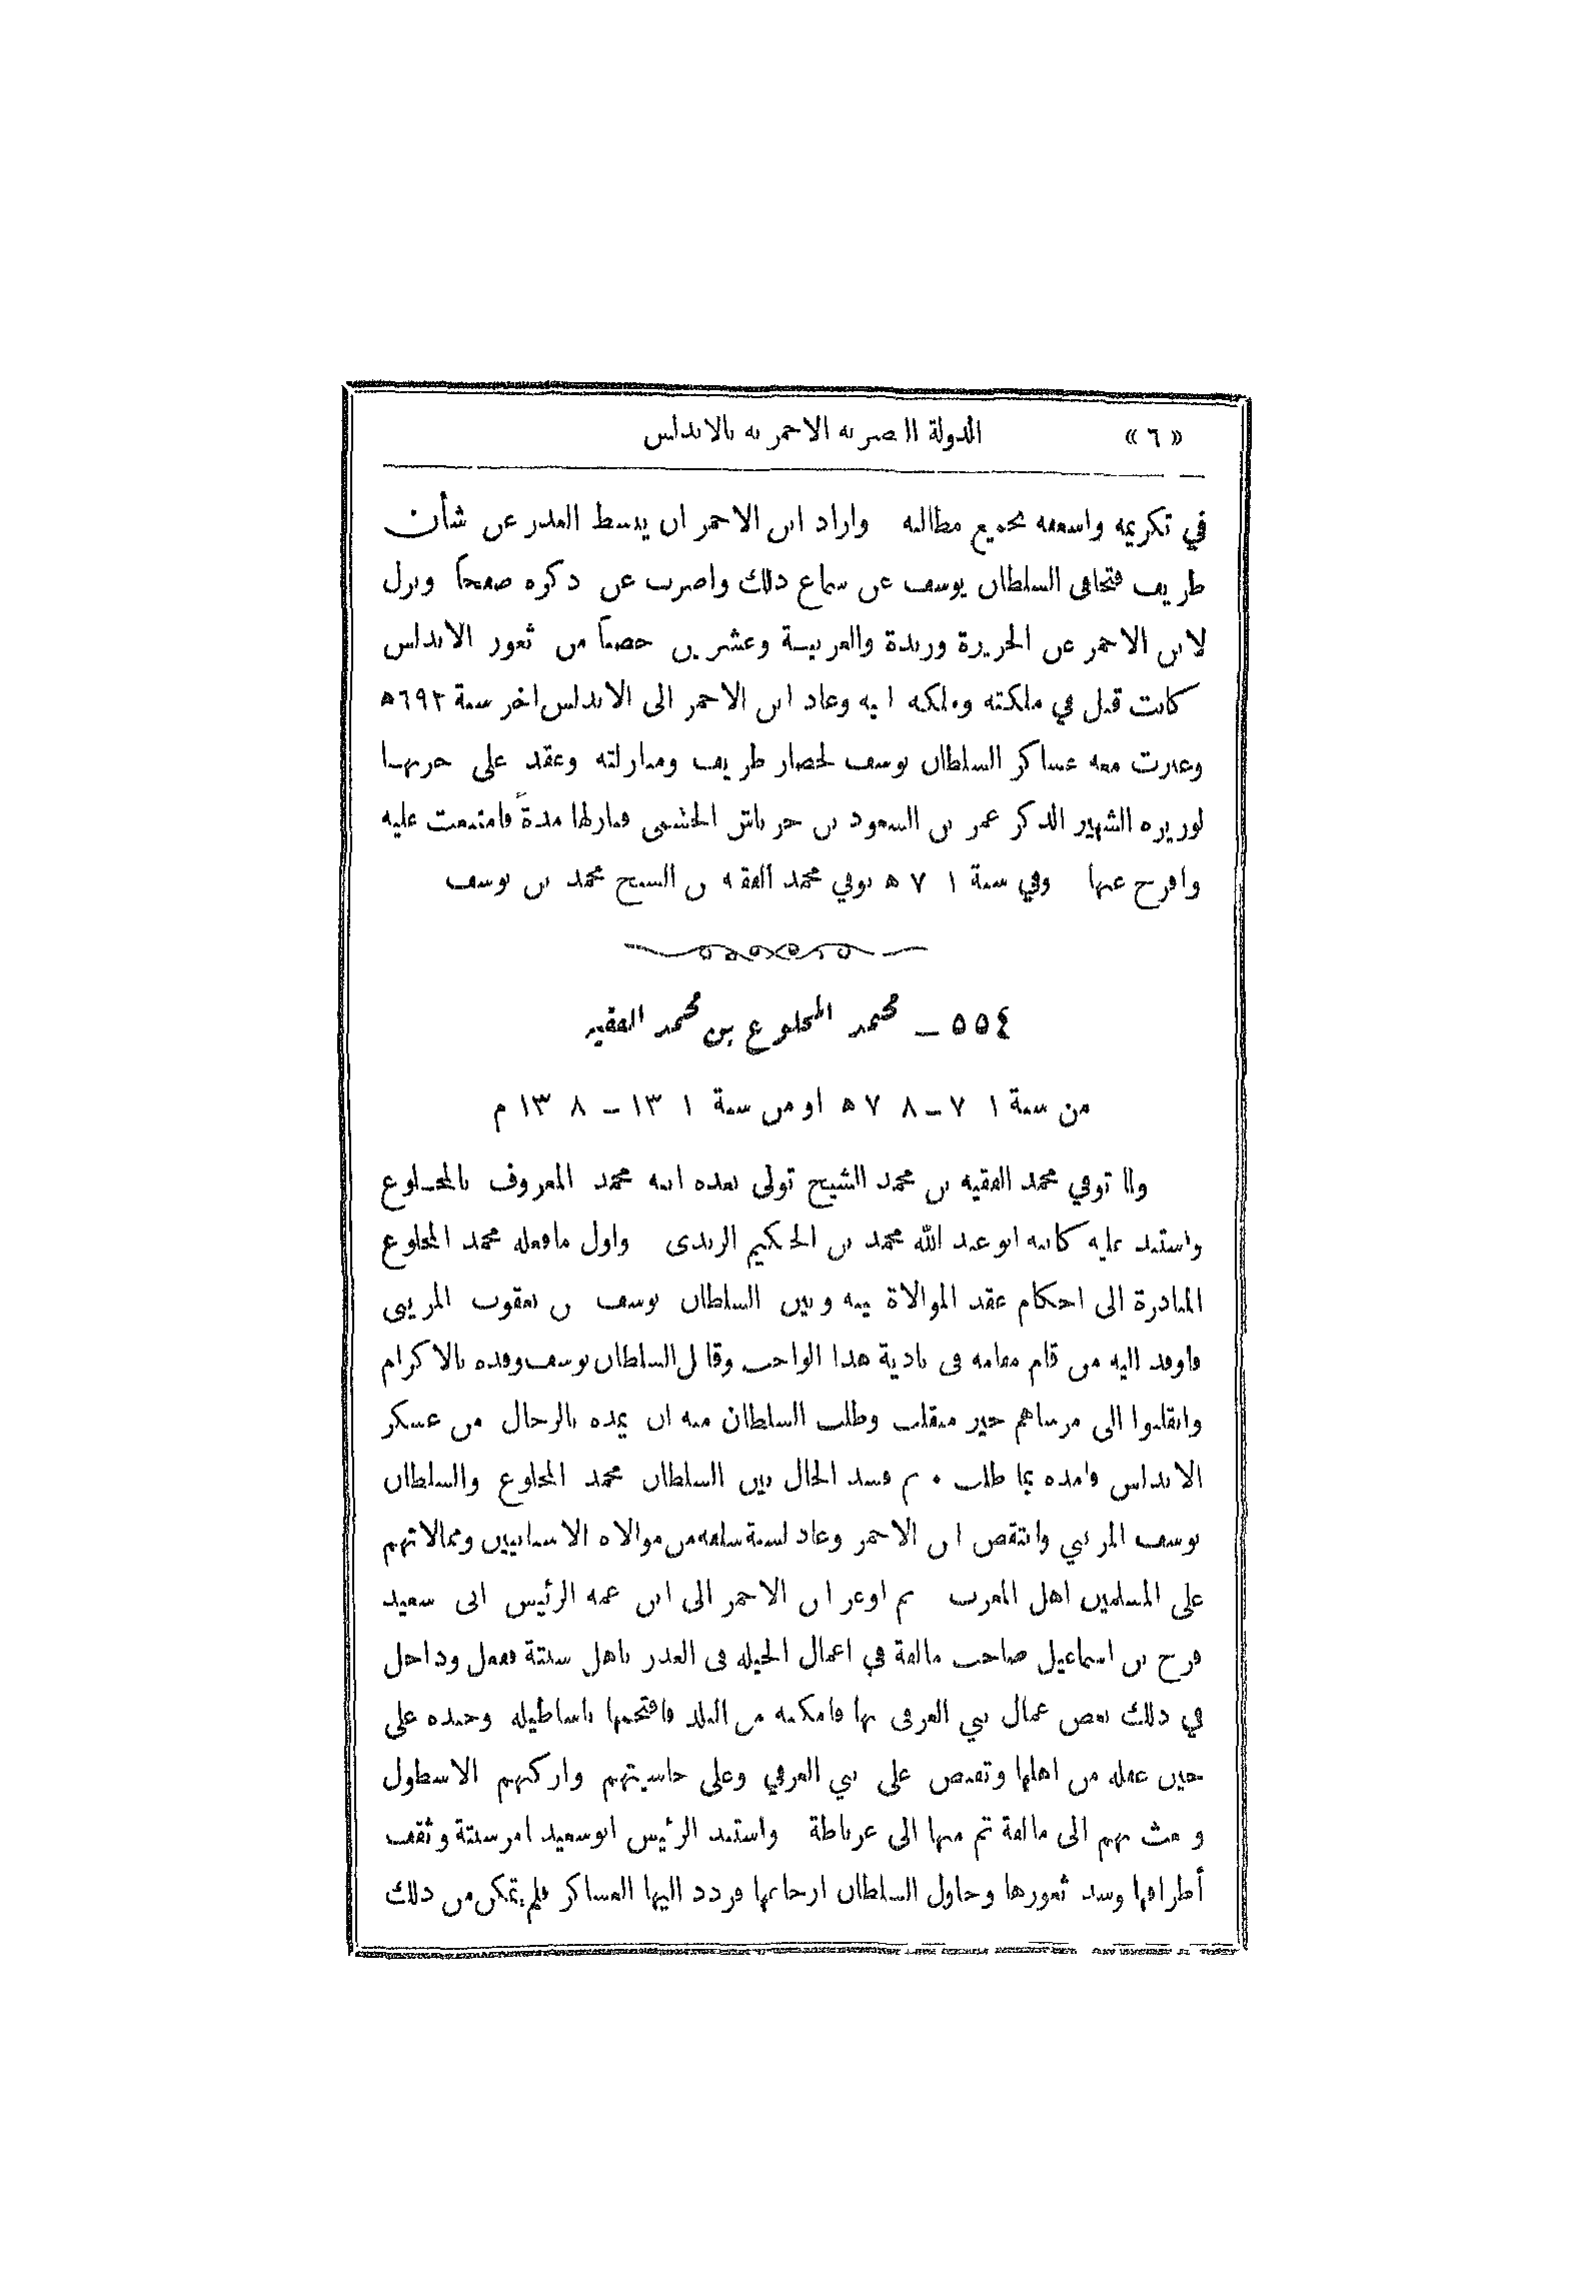 «٦» الدولة النصرية الاحمرية بالاندلس
في تكريمه واسعفه بجميع مطالبه واراد ابن الاحمر ان يبسط العذر عن شأن
طريف فتجافى السلطان يوسف عن سماع ذلك واضرب عن ذكره صفحاً ونزل
لابن الاحمر عن الجزيرة ورندة والغربية وعشرين حصناً من ثغور الاندلس
كانت قبل في ملكته وملكه ابيه وعاد ابن الاحمر الى الاندلس اخر سنة ٦٩٢ه
وعبرت معه عساكر السلطان يوسف لحصار طريف ومنازلته وعقد على حربها
لوزيره الشهير الذكر عمر بن السعود بن خرباش الحشمى فنازلها مدةً فامتنعت عليه
وافرج عنها وفي سنة ٧٠١ ه توفي محمد الفقيه بن الشيخ محمد بن يوسف
٥٥٤ – محمد المخلوع بن محمد الفقيه
من سنة ٧٠١–٧٠٨ ه او من سنة ١٣٠١–١٣٠٨ م
ولما توفي محمد الفقيه بن محمد الشيخ تولى بعده ابنه محمد المعروف بالمخلوع
واستبد عليه كاتبه ابو عبد الله محمد بن الحكيم الرندى واول مافعله محمد المخلوع
المبادرة الى احكام عقد الموالاة بينه وبين السلطان يوسف بن يعقوب المرينى
فاوفد اليه من قام مقامه فى تادية هذا الواجب وقابل السلطان يوسف وفده بالاكرام
وانقلبوا الى مرساهم خير منقلب وطلب السلطان منه ان يمده بالرجال من عسكر
الاندلس فامده بما طلب ٠ ثم فسد الحال بين السلطان محمد المخلوع والسلطان
يوسف المريني وانتقض ابن الاحمر وعاد لسنة سلفه من موالاه الاسبانيين وممالاتهم
على المسلمين اهل المغرب ثم اوعز ابن الاحمر الى ابن عمه الرئيس ابى سعيد
فرج بن اسماعيل صاحب مالقة في اعمال الحيله فى الغدر باهل سبتة ففعل وداخل
في ذلك بعض عمال بني العزفى بها فامكنه من البلد فافتحمها باساطيله وجنده على
حين غفله من اهلها وتقبض على بني العزفي وعلى حاسيتهم واركبهم الاسطول
وبعث بهم الى مالقة ثم منها الى غرناطة واستبد الرئيس ابوسعيد بامر سبتة وثقف
أطرافها وسد ثغورها وحاول السلطان ارجاعها فردد اليها العساكر فلم يتمكن من ذلك